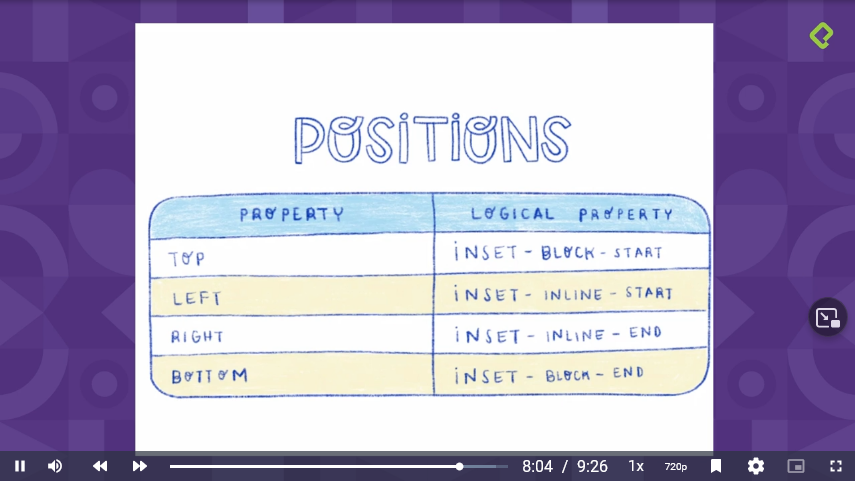 POSITIONS
PROPERTY LOGICAL PROPERTY
TOP INSET-BLOCK-START
LEFT INSET-INLINE-START
RIGHT INSET-INLINE-END
BOTTOM INSET-BLOCK-END
8:04 / 9:26 1x 720p